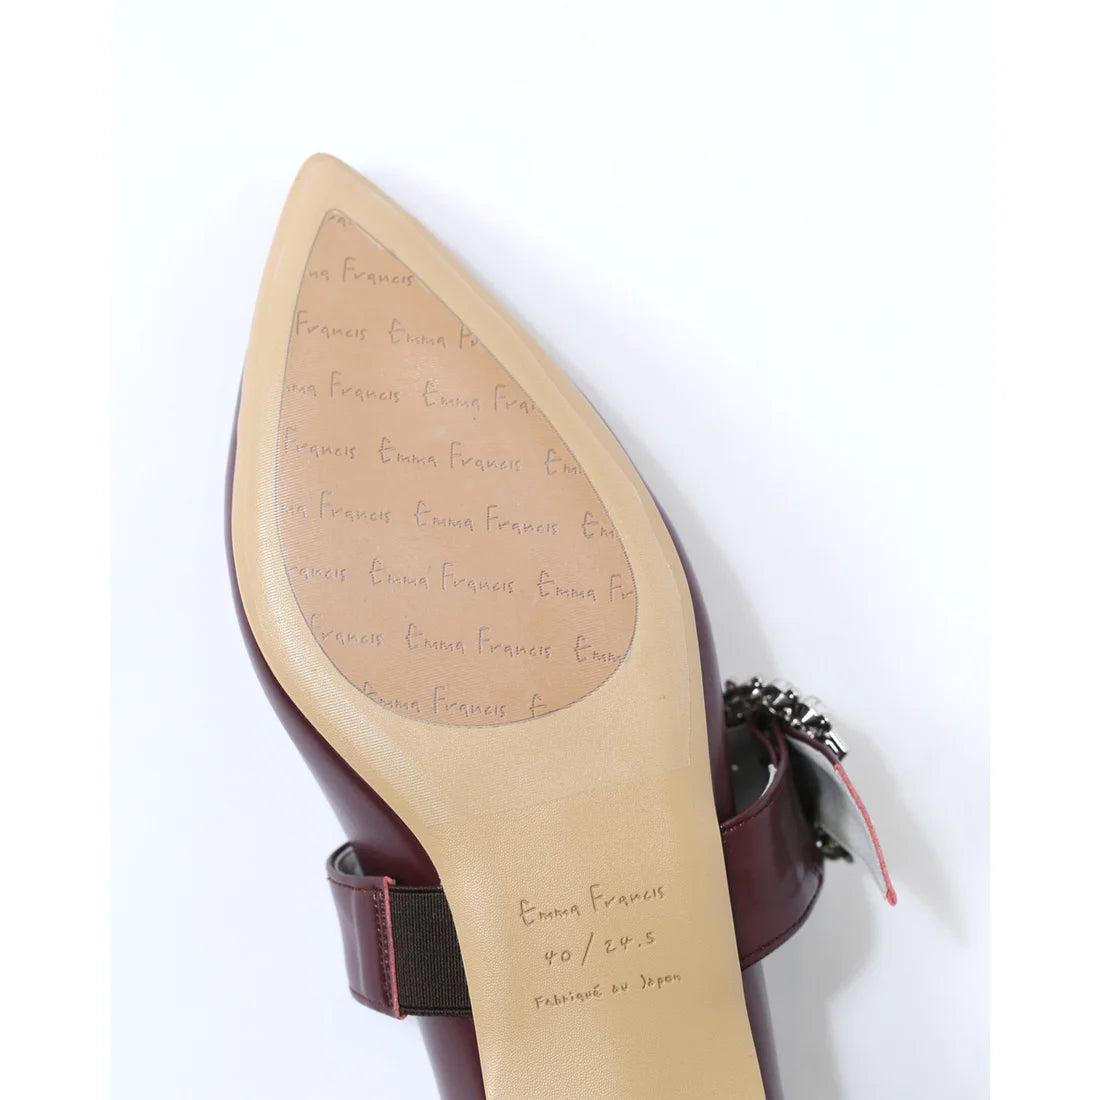 ra
ma Francis
Francis Emma Fr
mma Francis Emma Fran
Francis Emma Francis Em
ma Francis Emma Francis Em
rancis Emma Francis Emma Fr
Francis Emma Francis Emm
Emma Francis E
Emma Francis
40 / 24.5
Fabriqué au Japon